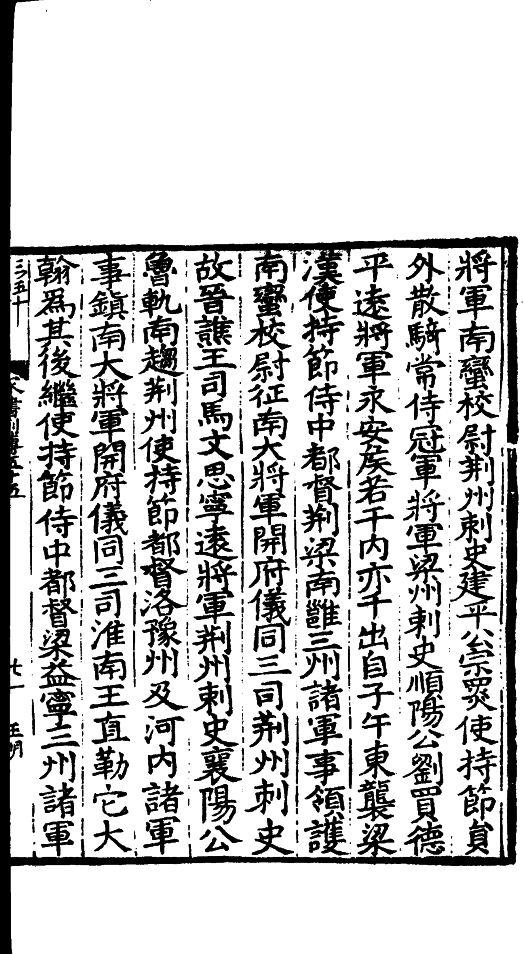 將軍南蠻校尉荆州刺史建平公宗㷛使持節員
外散騎常侍冠軍將軍梁州刺史順陽公劉買德
平遠將軍永安矦若干内亦千出自子午東襲梁
漢使持節侍中都督荆梁南雝三州諸軍事領護
南蠻校尉征南大將軍開府儀同三司荆州刺史
故晉譙王司馬文思寧遠將軍荆州刺史襄陽公
魯軌南趨荆州使持節都督洛豫州及河内諸軍
事鎮南大將軍開府儀同三司淮南王直勤它大
翰爲其後繼使持節侍中都督梁益寧三州諸軍